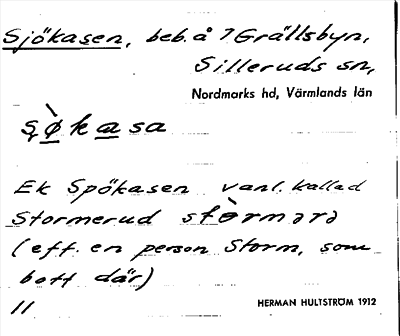 Sjökasen, beb. å 7 Grällsbyn,
Silleruds sn,
Nordmarks hd, Värmlands län
sø̀kasa
Ek Spökasen vanl. kallad
Stormerud stòrmərə
(eft. en person Storm, som
bott där)
11
HERMAN HULTSTRÖM 1912